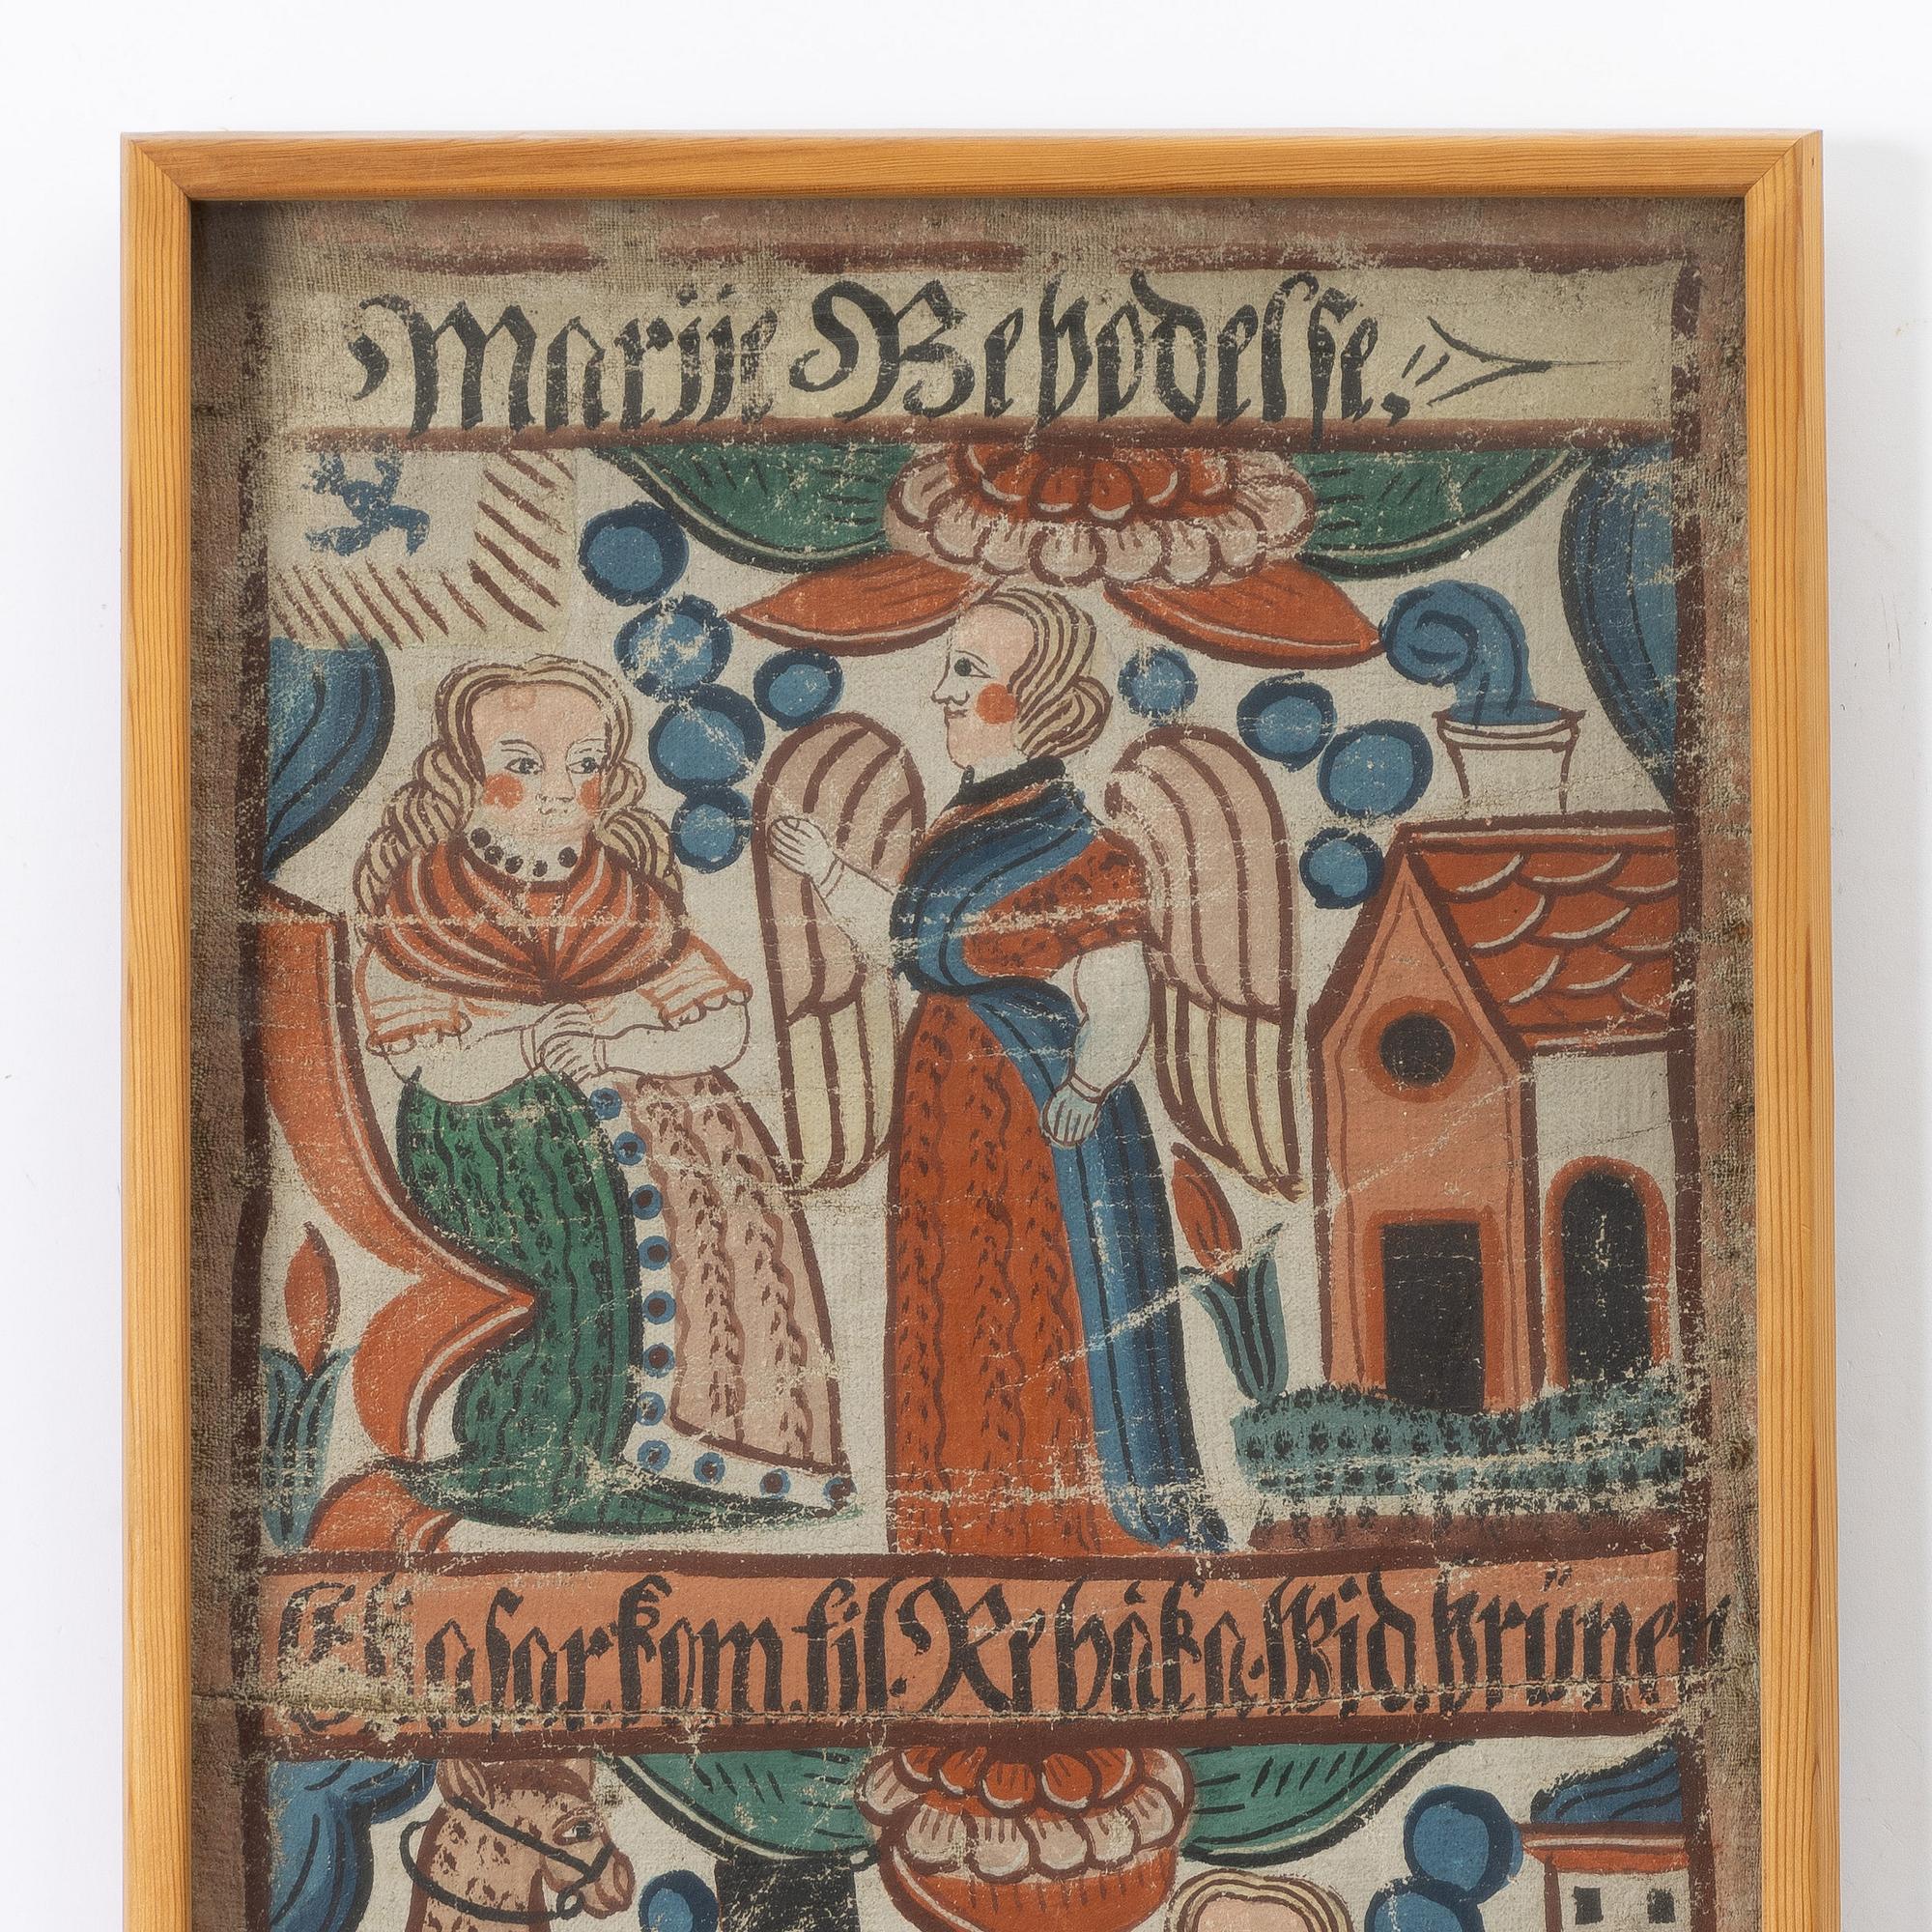 Marije Bebodelse,
Elieasar. kom. til. Rebäka. Wid. brünen